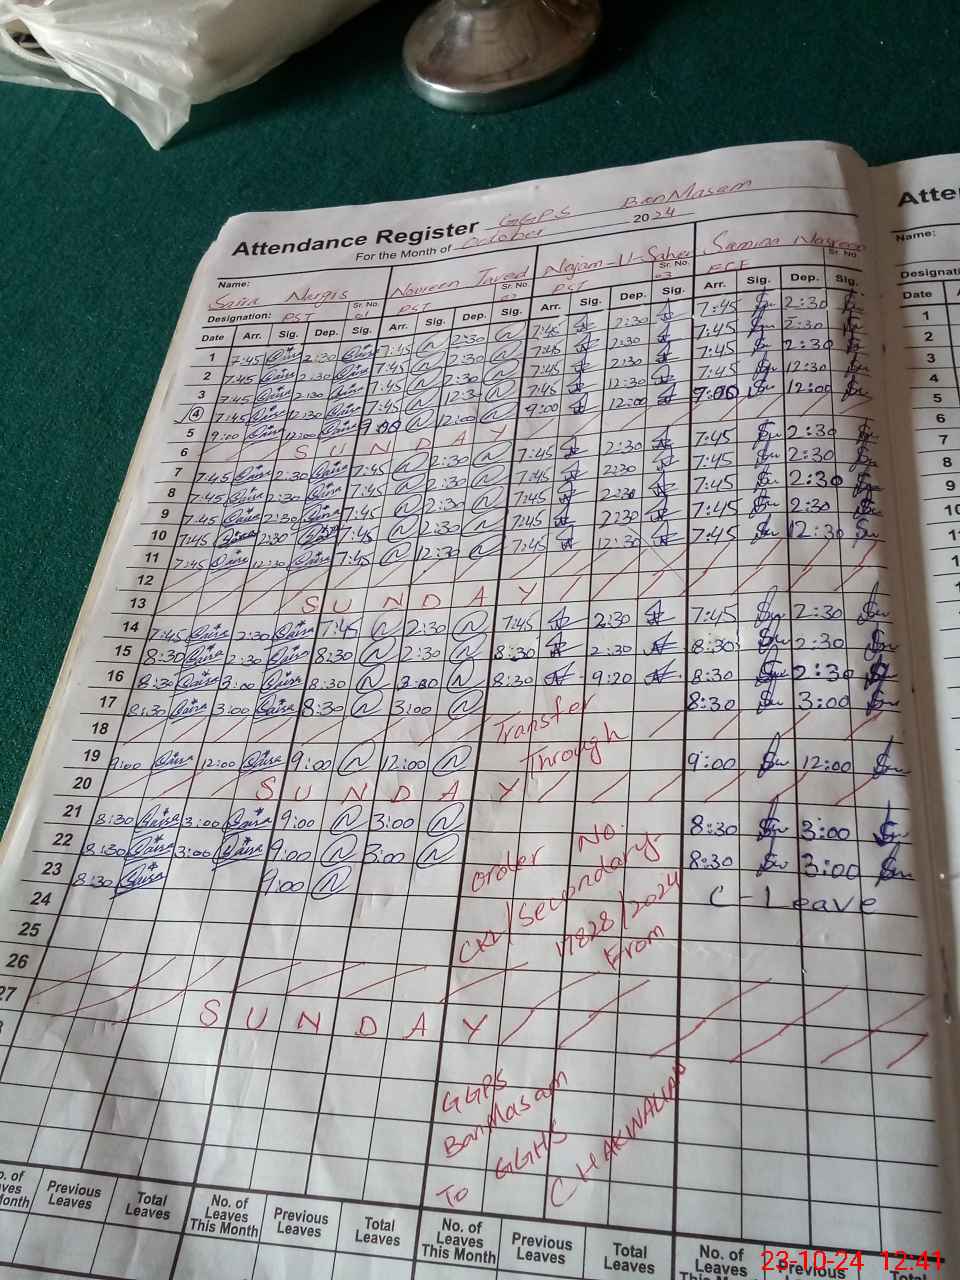 Attendance Register GGPS BanMasam
For the Month of October 2024
Name: Saira Nergis Novreen Javed Najam-U-Saher Samina Naureen
Designation: PST Sr. No. 01 PST Sr. No. 02 PST Sr. No. 03 ECE
Date Arr. Sig. Dep. Sig. Arr. Sig. Dep. Sig. Arr. Sig. Dep. Sig. Arr. Sig. Dep. Sig.
1 7:45 Saira 2:30 Saira 7:45 N 2:30 N 7:45 2:30 7:45 2:30
2 7:45 Saira 2:30 Saira 7:45 N 2:30 N 7:45 2:30 7:45 2:30
3 7:45 Saira 2:30 Saira 7:45 N 2:30 N 7:45 2:30 7:45 2:30
4 7:45 Saira 12:30 Saira 7:45 N 12:30 N 7:45 12:30 7:45 12:30
5 9:00 Saira 12:00 Saira 9:00 N 12:00 N 9:00 12:00 9:00 12:00
6 SUNDAY
7 7:45 Saira 2:30 Saira 7:45 N 2:30 N 7:45 2:30 7:45 2:30
8 7:45 Saira 2:30 Saira 7:45 N 2:30 N 7:45 2:30 7:45 2:30
9 7:45 Saira 2:30 Saira 7:45 N 2:30 N 7:45 2:30 7:45 2:30
10 7:45 Saira 2:30 Saira 7:45 N 2:30 N 7:45 2:30 7:45 2:30
11 7:45 Saira 12:30 Saira 7:45 N 12:30 N 7:45 12:30 7:45 12:30
12
13 SUNDAY
14 7:45 Saira 2:30 Saira 7:45 N 2:30 N 7:45 2:30 7:45 2:30
15 8:30 Saira 2:30 Saira 8:30 N 2:30 N 8:30 2:30 8:30 2:30
16 8:30 Saira 3:00 Saira 8:30 N N 8:30 9:20 8:30 2:30
17 8:30 Saira 3:00 Saira 8:30 N 3:00 N Transfer 8:30 3:00
18 Through
19 9:00 Saira 12:00 Saira 9:00 N 12:00 N 9:00 12:00
20 SUNDAY
21 8:30 Saira 3:00 Saira 9:00 N 3:00 N order No. 8:30 3:00
22 8:30 Saira 3:00 Saira 9:00 N 3:00 N 8:30 3:00
23 8:30 Saira 9:00 N CKL/Secondary- C-Leave
24
25 17828/2024
26 From
27 SUNDAY
GGPS
BanMasam
To GGHS
CHAKWALIAN
No. of Leaves This Month Previous Leaves Total Leaves
No. of Leaves This Month Previous Leaves Total Leaves
No. of Leaves This Month Previous Leaves Total Leaves
No. of Leaves Previous Total
Atte
Name:
Designati
Date
1
2
3
4
5
6
7
8
9
10
11
23-10-24 12:41